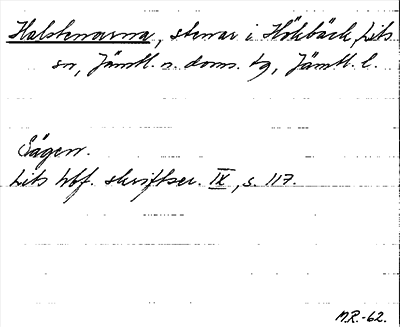 Halstenarna, stenar i Hökbäck, Lits
sn, Jämtl. n. doms. tg, Jämtl. l.
Sägen.
Lits hbf. skriftser. IX, s. 117.
M.R.-62.